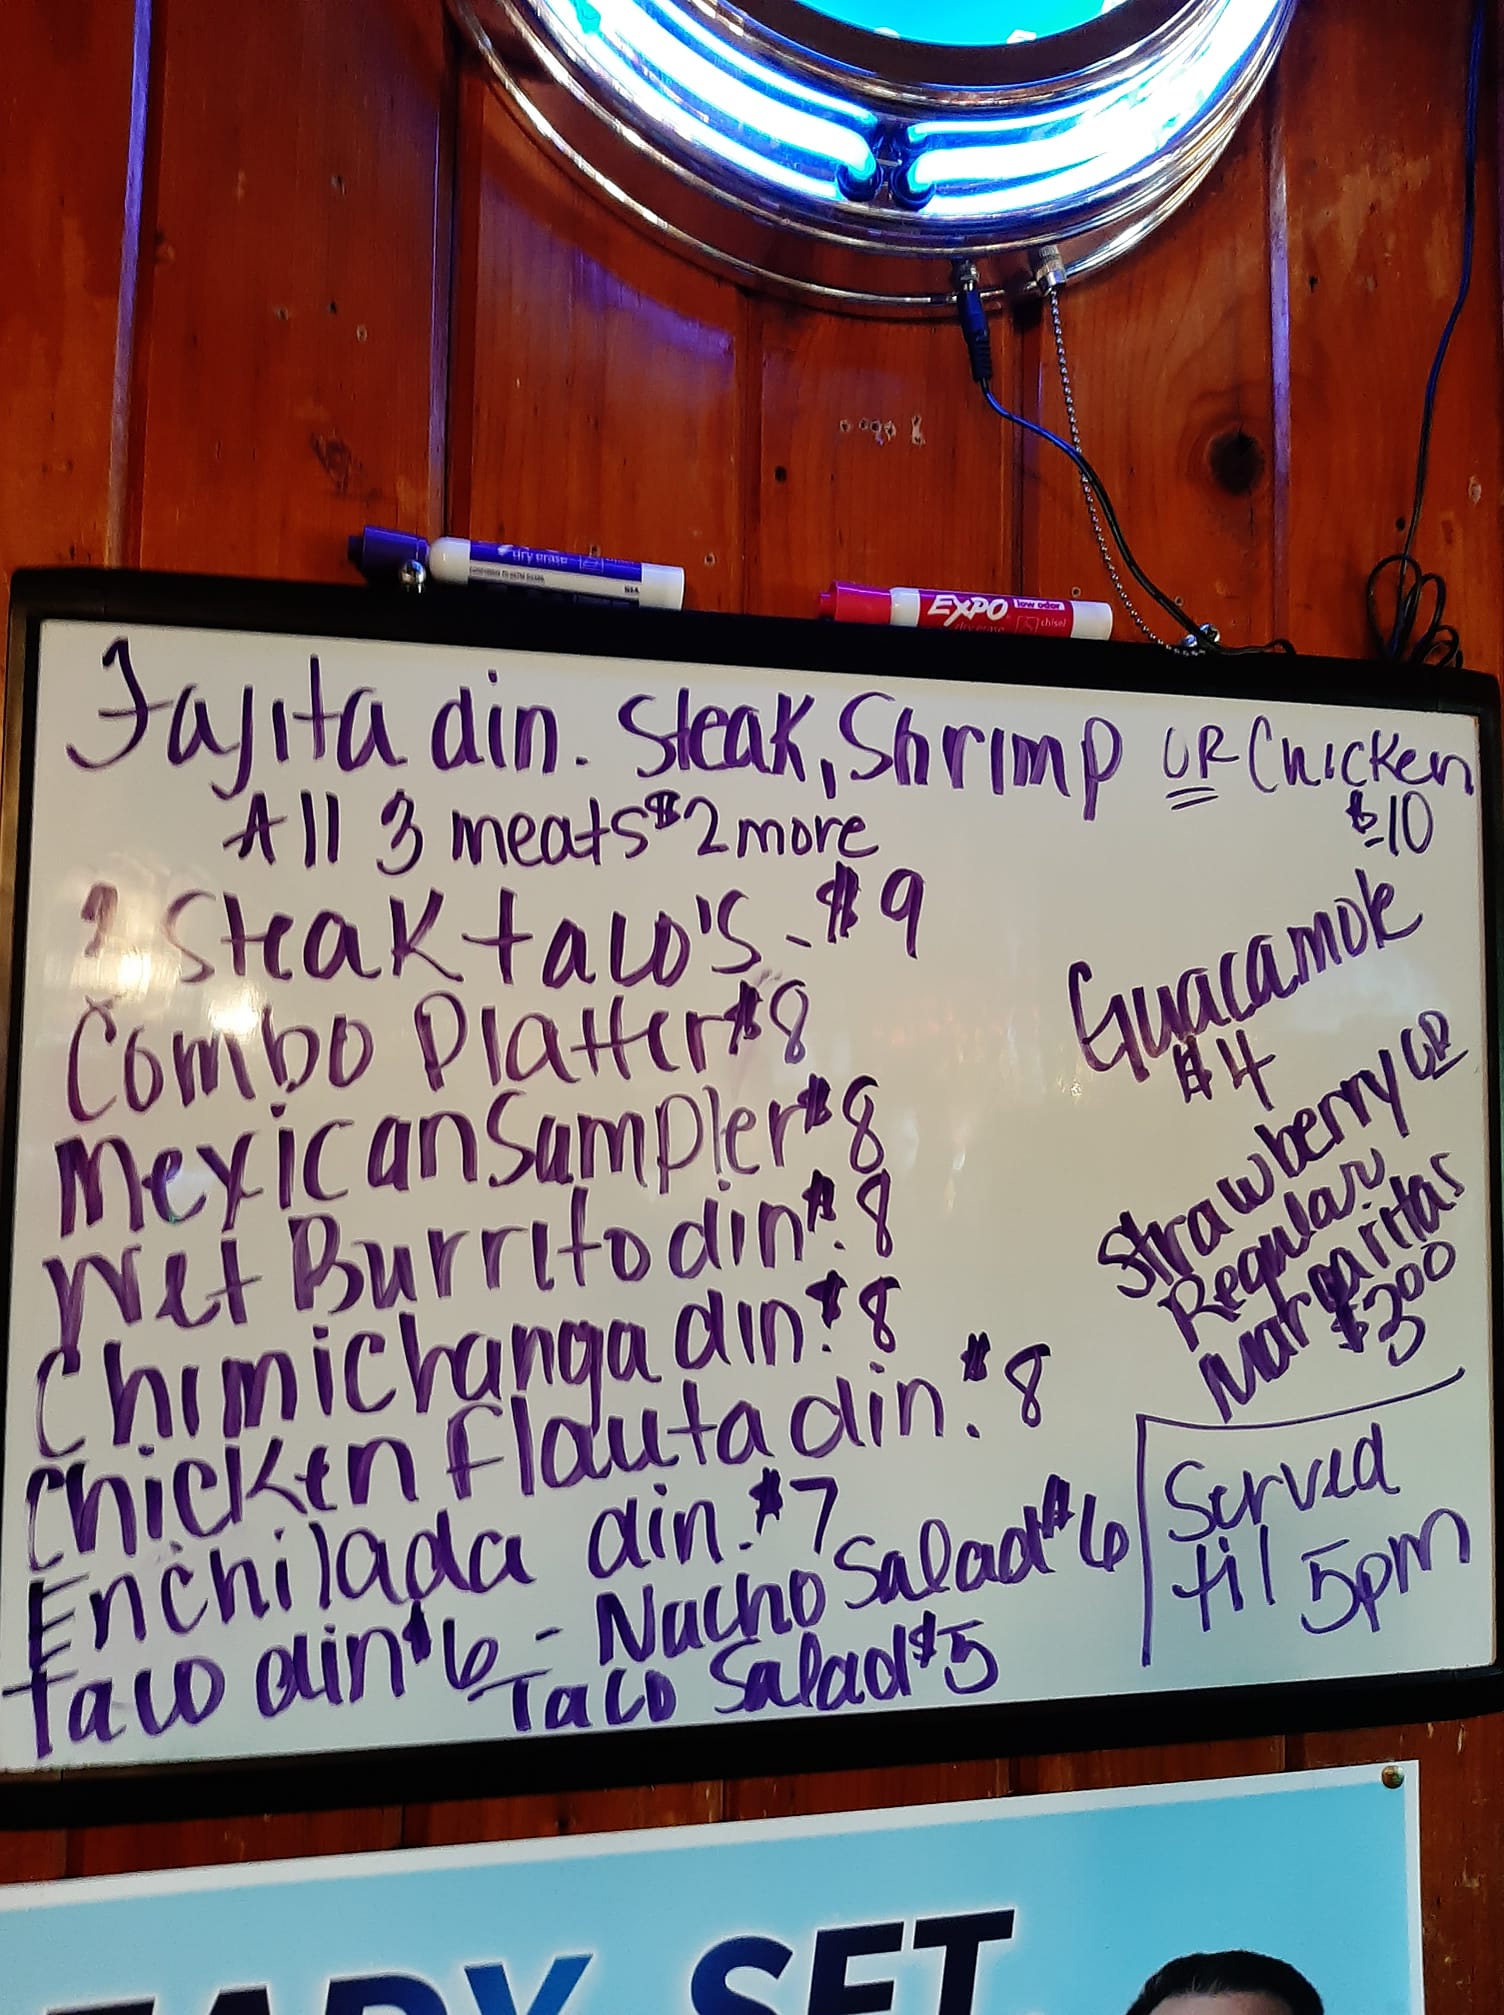 dry erase
EXPO low odor
dry erase chisel
Fajita din. Steak, Shrimp OR Chicken
$10
All 3 meats $2 more
Steak taco's - $9
Combo Platter $8
Mexican Sampler $8
Wet Burrito din. $8
Chimichanga din. $8
Chicken flauta din. $8
Enchilada din. $7
Taco din $6 - Nacho Salad $6
Taco Salad $5
Guacamole
$4
Strawberry OR
Regular
Margaritas
$3.00
Served
til 5pm
EADY, SET